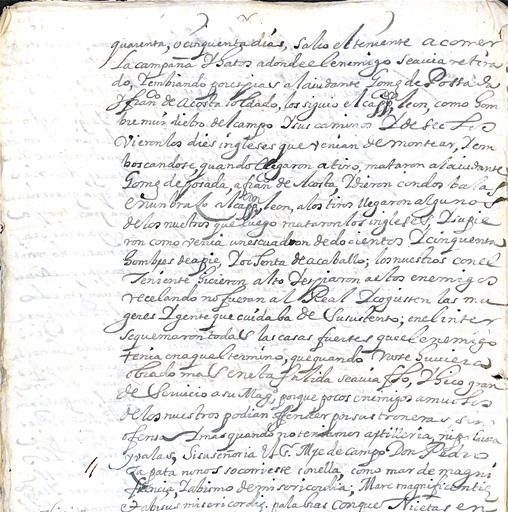 quarenta, o cinquenta dias, salio el teniente a correr
la campaña y hatos adonde el enemigo se avia retira
do, y embiando por espias a el aiudante Gomez de Posada
y fran.co de Acosta soldado, los siguio el cap.n leon, como hom
bre muy diestro del campo y sus caminos
vieron los dies ingleses que venian de montear, y em
boscandose, quando llegaron a tiro, mataron a el aiudante
Gomez de posada, a fran.co de Acosta, y dieron con dos balas
en un braço a el cap.n leon, a los tiros llegaron algunos
de los nuestros que luego mataron los ingleses, y supie
ron como venia un esquadron de docientos y cinquenta
hombres de a pie, y ochenta de a caballo; los nuestros con el
Teniente hicieron alto y espiaron a el los enemigos
recelando no fueran a el Real y cogiesen las mu
geres y gente que cuidaba de su sustento; en el inter
se quemaron todas las casas fuertes que el enemigo
tenia en aquel termino, que quando no se huviera
obrado mas en esta salida se avia hecho, y hico gran
de servicio a su Mag.d, porque pocos enemigos a muchos
de los nuestros podian offender por sus troneras, sin
ofensa y mas quando no teniamos artilleria, ni polvora
y valas, si su señoria el G. M.e de campo Don Pedro
Ça pata no nos socorriesse con ella, como mar de magni
ficencia, y abismo de misericordia; Mare magnificentiæ
et abisus misericordiæ. palabras con que Nicetas en